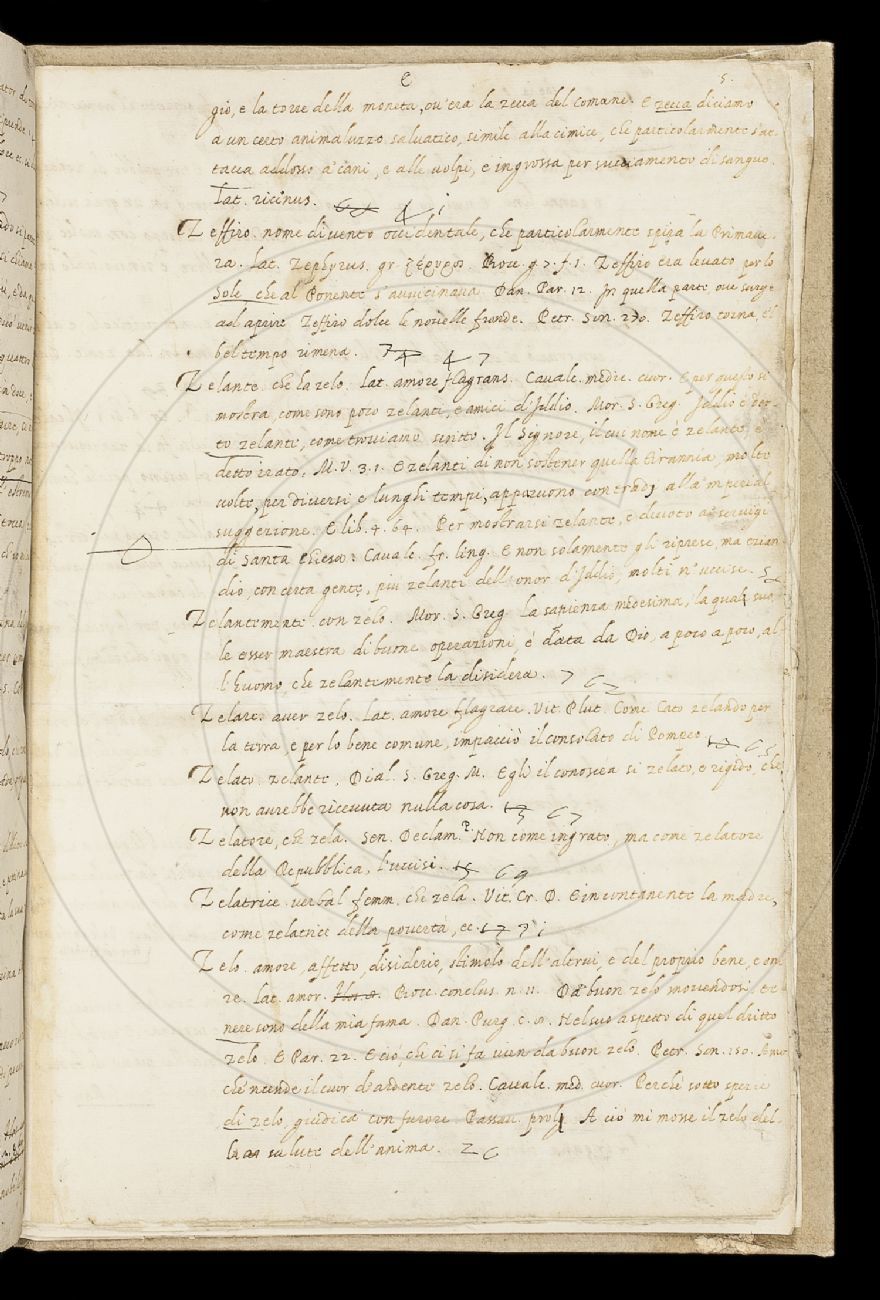 e 5.
gio, e la torre della moneta, ov'era la zecca del comune. E zecca diciamo
a un certo animaluzzo salvatico, simile alla cimice, che particolarmente s'at-
tacca addosso a' cani, e alle volpi, e ingrossa per succiamento di sangue.
Lat. ricinus.
Zeffiro. nome di vento occidentale, che particolarmente spira la Primave-
ra. Lat. Zephyrus. gr. ζέφυρος. Bocc. g. 7. f. 1. Zeffiro era levato per lo
Sole, che al Ponente s'avvicinava. Dan. Par. 12. In quella parte ove surge
ad aprire Zeffiro dolce le novelle fronde. Petr. Son. 270. Zeffiro torna, e'l
bel tempo rimena. 74 47
Zelante. che ha zelo. Lat. amore flagrans. Cavalc. medic. cuor. E per questo si
mostra, come sono poco zelanti, e amici d'Iddio. Mor. S. Greg. Iddio è det-
to zelante, come troviamo scritto. Il Signore, il cui nome è zelante, è
detto irato. M. V. 3. 1. E zelanti di non sostener quella tirannia, molte
volte, per diversi e lunghi tempi, apparvono contradj alla 'mperial
suggezione. E lib. 4. 64. Per mostrarsi zelante, e divoto a' servigi
di Santa Chiesa. Cavalc. fr. ling. E non solamente gli riprese, ma ezian-
dio, con certa gente, più zelanti dell'onor d'Iddio, molti n'uccise. 5
Zelantemente. con zelo. Mor. S. Greg. la sapienza medesima, la qual suo-
le esser maestra di buone operazioni, è data da Dio, a poco a poco, al-
l'huomo, che zelantemente la disidera. 7 62
Zelare. aver zelo. Lat. amore flagrare. Vit. Plut. Come Cato zelando per
la terra, e per lo bene comune, impacciò il consolato di Pompeo. 65
Zelato. zelante. Dial. S. Greg. M. Egli il conoscea sì zelato, e rigido, che
non avrebbe ricevuta nulla cosa. 15 67
Zelatore, che zela. Sen. Declam. P. Non come ingrato, ma come zelatore
della Repubblica, l'uccisi. 15 69
Zelatrice. verbal femm. che zela. Vit. Cr. D. E incontanente la madre,
come zelatrice della povertà, ec. 17 71
Zelo. amore, affetto, disiderio, stimolo dell'altrui, e del proprio bene, e ono-
re. Lat. amor. Bocc. conclus. n. 11. Da buon zelo movendosi te-
nere sono della mia fama. Dan. Purg. c. 8. Nel suo aspetto di quel dritto
zelo. E Par. 22. E ciò, che ci si fa vien da buon zelo. Petr. Son. 150. Amor
che 'ncende il cuor d'ardente zelo. Cavalc. med. cuor. Perchè sotto spezie
di zelo, giudica con furore. Passav. prol. A ciò mi move il zelo del-
la salute dell'anima. 26